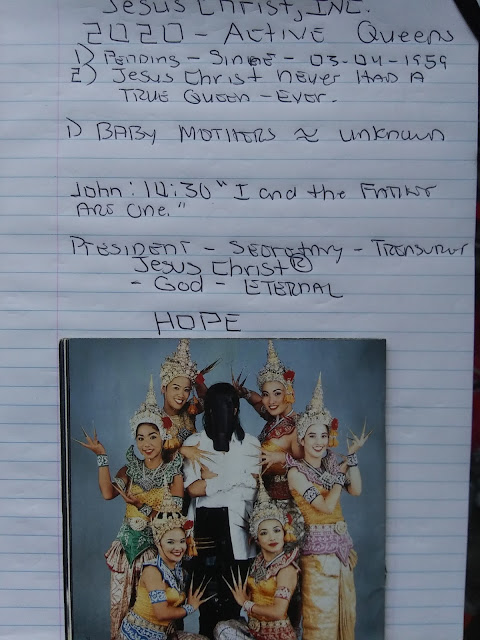 Jesus Christ, INC.
2020 - Active Queens
1) Pending - Since - 03-04-1959
2) Jesus Christ never HAD A
TRUE Queen - Ever.
1) BABY MOTHERS ≈ unknown
John: 14:30 "I and the FATHER
ARE One."
President - Secretary - Treasurer
Jesus Christ®
- God - ETERNAL
HOPE